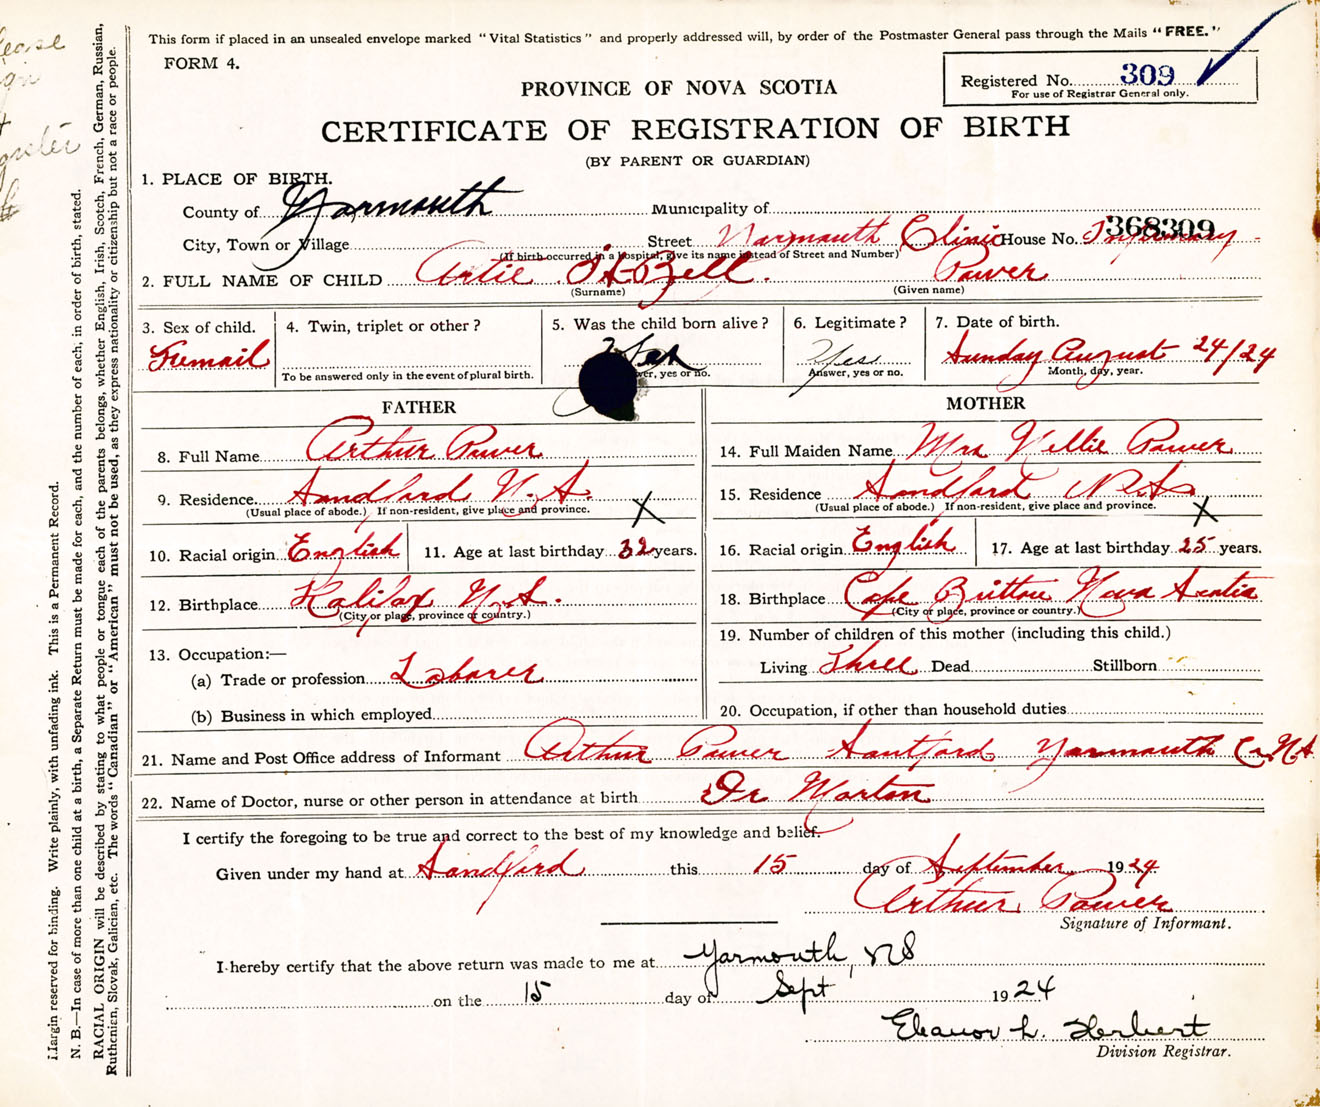 Please
sign
This form if placed in an unsealed envelope marked "Vital Statistics" and properly addressed will, by order of the Postmaster General pass through the Mails "FREE."
FORM 4.
Registered No. 309
For use of Registrar General only.
PROVINCE OF NOVA SCOTIA
CERTIFICATE OF REGISTRATION OF BIRTH
(BY PARENT OR GUARDIAN)
1. PLACE OF BIRTH.
County of Yarmouth Municipality of
368309
City, Town or Village Street Yarmouth Clinic House No. Infirmary
(If birth occurred in a hospital, give its name instead of Street and Number)
2. FULL NAME OF CHILD Artie Power
(Surname) (Given name)
3. Sex of child. Femail
4. Twin, triplet or other?
To be answered only in the event of plural birth.
5. Was the child born alive? Yes
yes or no.
6. Legitimate? Yes
Answer, yes or no.
7. Date of birth.
Sunday August 24/24
Month, day, year.
FATHER
8. Full Name Arthur Power
9. Residence. Sandford N.S.
(Usual place of abode.) If non-resident, give place and province. X
10. Racial origin English 11. Age at last birthday 32 years.
12. Birthplace Halifax N.S.
(City or place, province or country.)
13. Occupation:—
(a) Trade or profession Laborer
(b) Business in which employed
MOTHER
14. Full Maiden Name Mrs Nellie Power
15. Residence Sandford N.S
(Usual place of abode.) If non-resident, give place and province. X
16. Racial origin English 17. Age at last birthday 25 years.
18. Birthplace Cape Britton Nova Scotia
(City or place, province or country.)
19. Number of children of this mother (including this child.)
Living Three Dead Stillborn
20. Occupation, if other than household duties
21. Name and Post Office address of Informant Arthur Power Santford Yarmouth Co N.S
22. Name of Doctor, nurse or other person in attendance at birth Dr Morton
I certify the foregoing to be true and correct to the best of my knowledge and belief.
Given under my hand at Sandford this 15 day of September 1924
Arthur Power
Signature of Informant.
I hereby certify that the above return was made to me at Yarmouth, NS
on the 15 day of Sept 1924
Eleanor L. Herbert
Division Registrar.
Margin reserved for binding. Write plainly, with unfading ink. This is a Permanent Record.
N. B.—In case of more than one child at a birth, a Separate Return must be made for each, and the number of each, in order of birth, stated.
RACIAL ORIGIN will be described by stating to what people or tongue each of the parents belongs, whether English, Irish, Scotch, French, German, Russian,
Ruthenian, Slovak, Galician, etc. The words "Canadian" or "American" must not be used, as they express nationality or citizenship but not a race or people.